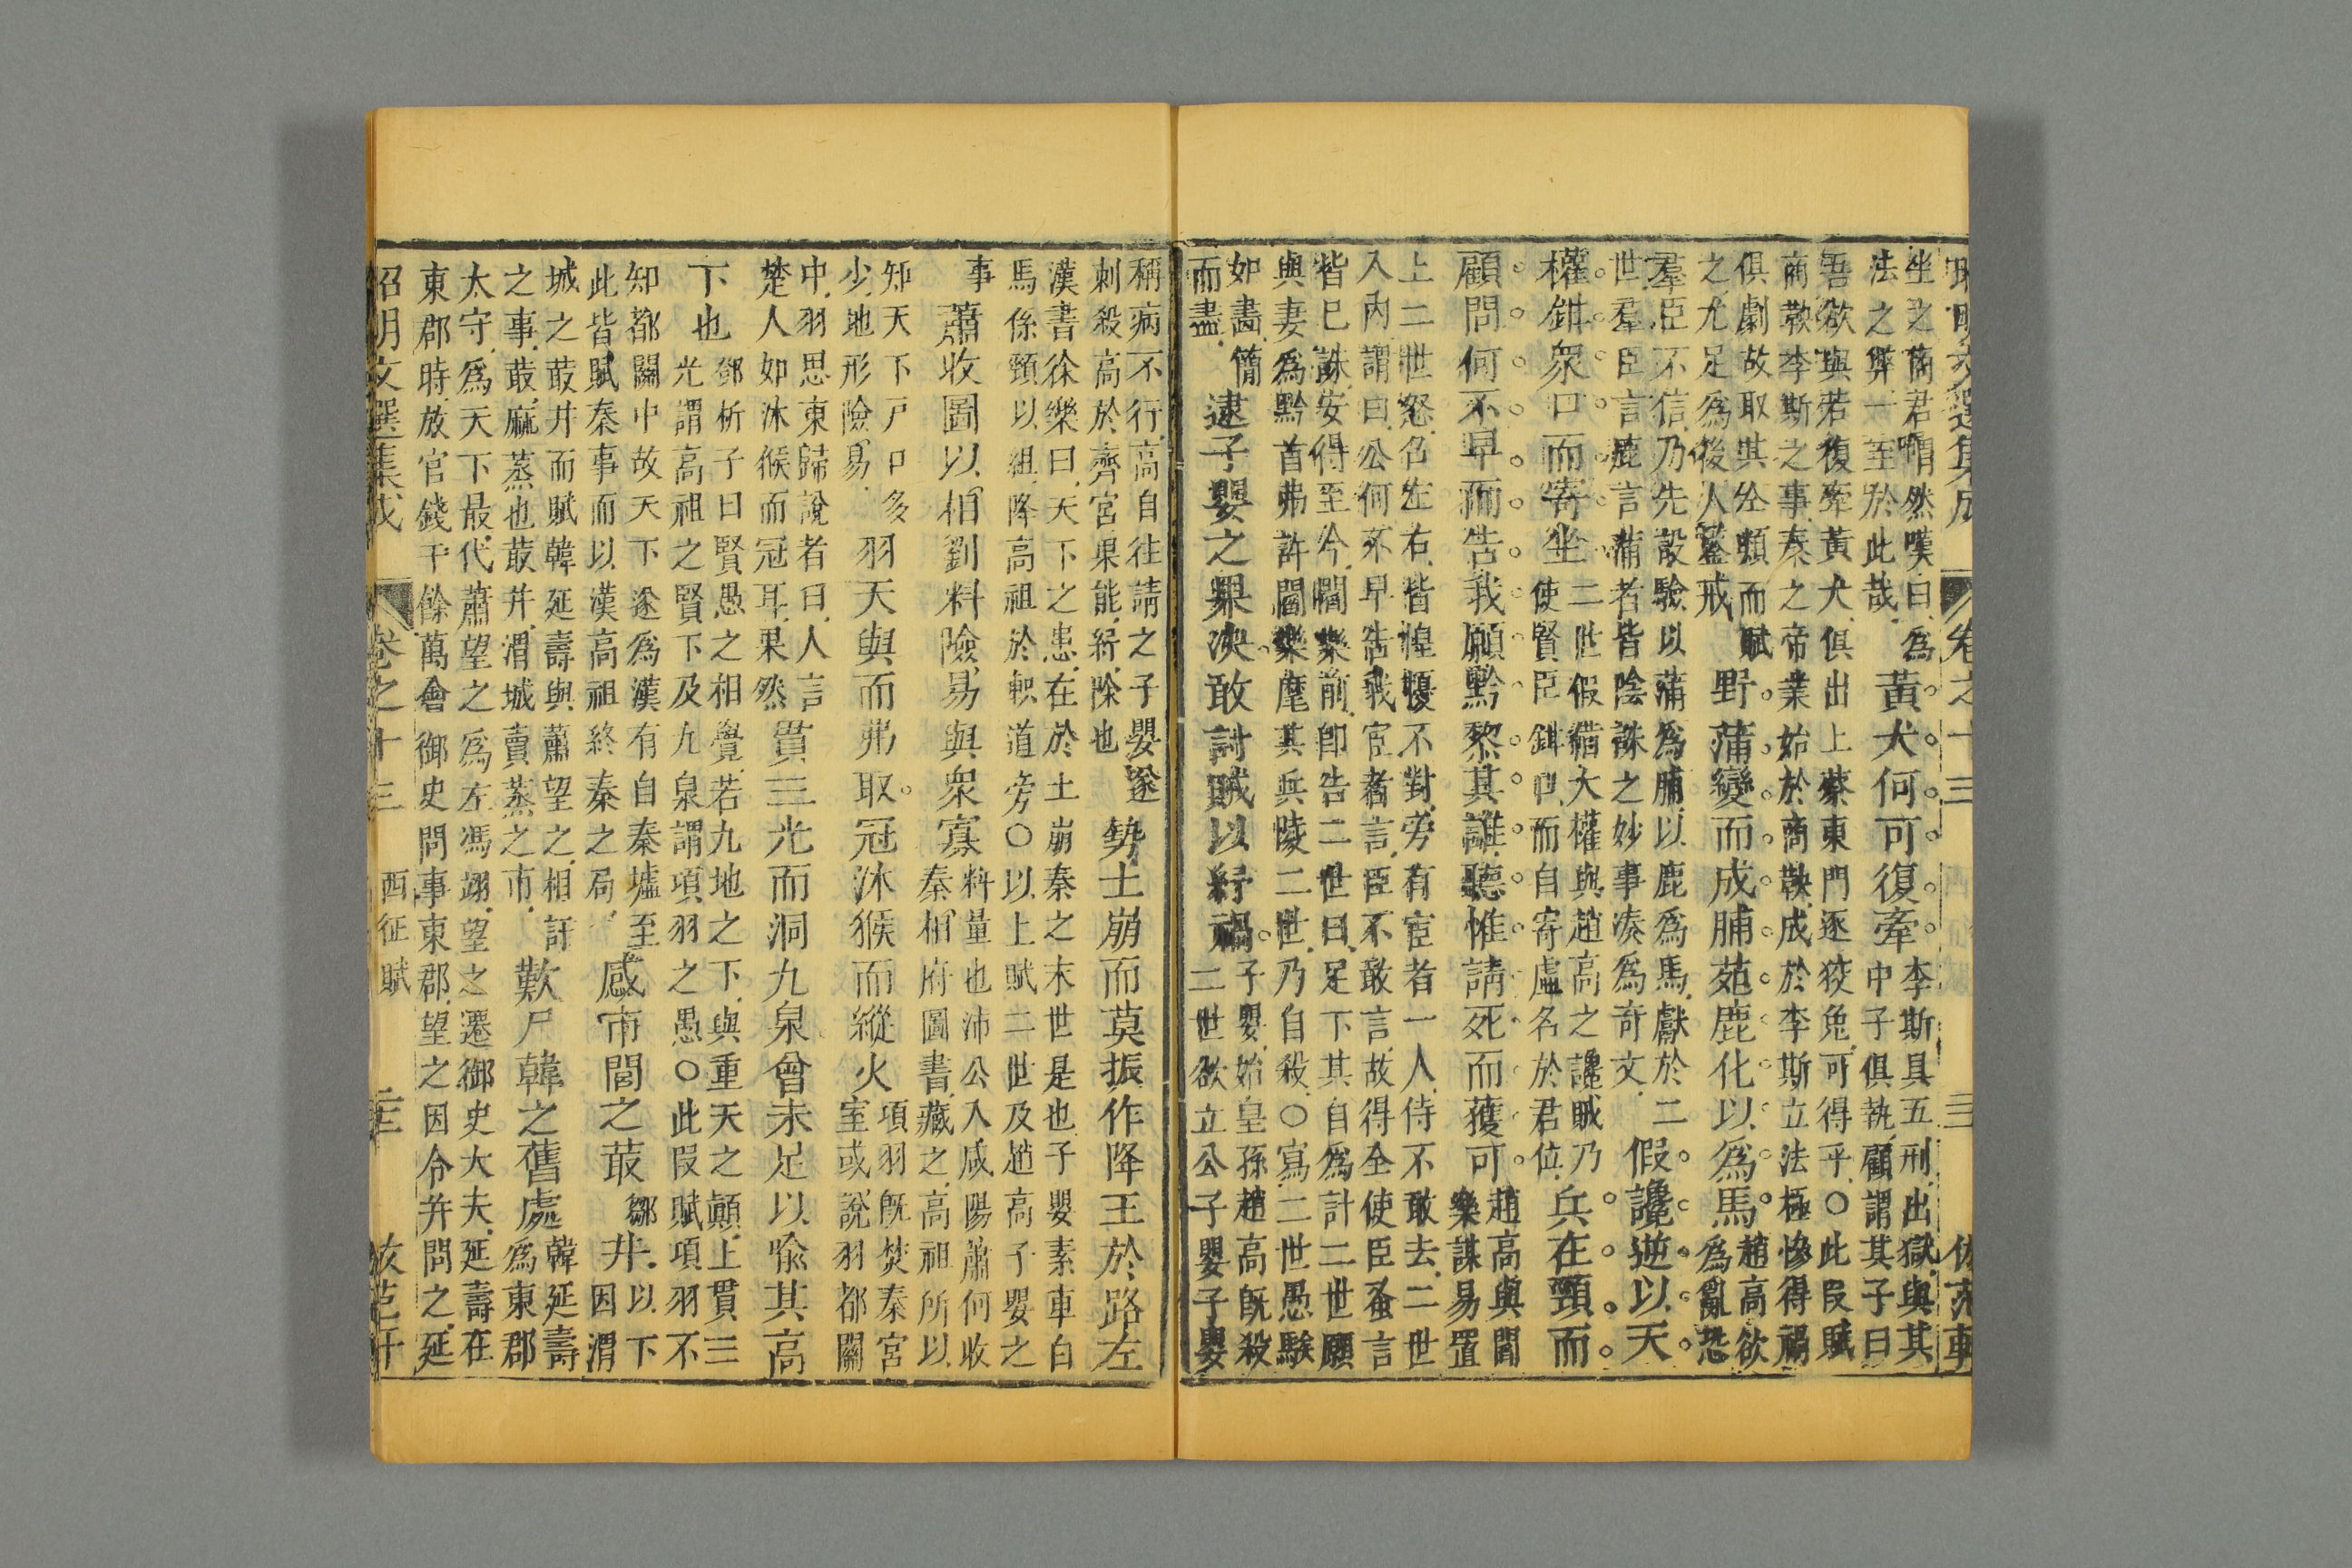 昭明文選集成 卷之十三
坐之商君喟然嘆曰爲
法之弊一至於此哉
黃犬何可復牽
李斯具五刑出獄與其
中子俱執顧謂其子曰
吾欲與若復牽黃犬俱出上蔡東門逐狡兔可得乎○此段賦
商鞅李斯之事秦之帝業始於商鞅成於李斯立法極慘得禍
俱劇故取其分類而賦
之尤足爲後人鑒戒
野蒲變而成脯苑鹿化以爲馬
趙高欲
爲亂恐
羣臣不信乃先設驗以蒲爲脯以鹿爲馬獻於二
世羣臣言鹿言蒲者皆陰誅之妙事湊爲奇文
假讒逆以天
權鉗衆口而寄坐
二世假借大權與趙高之讒賊乃
使賢臣鉗口而自寄虛名於君位
兵在頸而
顧問何不早而告我願黔黎其誰聽惟請死而獲可
趙高與閻
樂謀易置
上二世怒召左右皆惶擾不對旁有宦者一人侍不敢去二世
入內謂曰公何不早告我宦者言臣不敢言故得全使臣蚤言
皆已誅安得至今閻樂前卽告二世曰足下其自爲計二世願
與妻爲黔首弗許閻樂麾其兵陵二世乃自殺○寫二世愚騃
如畵簡
而盡
逮子嬰之果決敢討賊以紓禍
子嬰始皇孫趙高旣殺
二世欲立公子嬰子嬰
稱病不行高自往請之子嬰遂
刺殺高於齊宮果能紓除也
勢土崩而莫振作降王於路左
漢書徐樂曰天下之患在於土崩秦之末世是也子嬰素車白
馬係頸以組降高祖於軹道旁○以上賦二世及趙高子嬰之
事
蕭收圖以相劉料險易與衆寡
料量也沛公入咸陽蕭何收
秦相府圖書藏之高祖所以
知天下戸口多
少地形險易
羽天與而弗取冠沐猴而縱火
項羽旣焚秦宮
室或說羽都關
中羽思東歸說者曰人言
楚人如沐候而冠耳果然
貫三光而洞九泉曾未足以喩其高
下也
鄧析子曰賢愚之相覺若九地之下與重天之顚上貫三
光謂高祖之賢下及九泉謂項羽之愚○此段賦項羽不
知都關中故天下遂爲漢有自秦墟至
此皆賦秦事而以漢高祖終秦之局
感市閭之菆井
鄒以下
因渭
城之菆井而賦韓延壽與蕭望之相訐
之事菆麻蒸也菆井渭城賣蒸之市
歎尸韓之舊處
韓延壽
爲東郡
太守爲天下最代蕭望之爲左馮翊望之遷御史大夫延壽在
東郡時放官錢千餘萬會御史問事東郡望之因令并問之延
昭明文選集成 卷之十三 西征賦